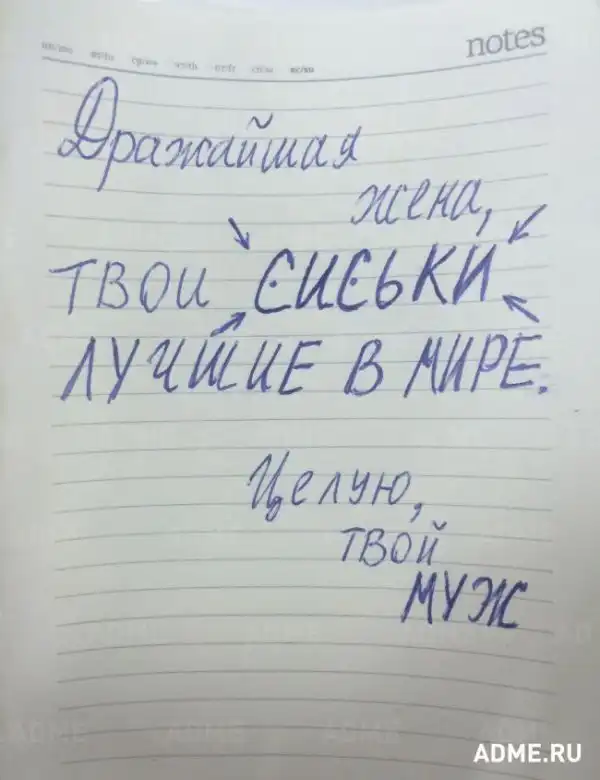 notes
Дражайшая
жена,
ТВОИ СИСЬКИ
ЛУЧШИЕ В МИРЕ.
Целую,
ТВОЙ
МУЖ
ADME.RU